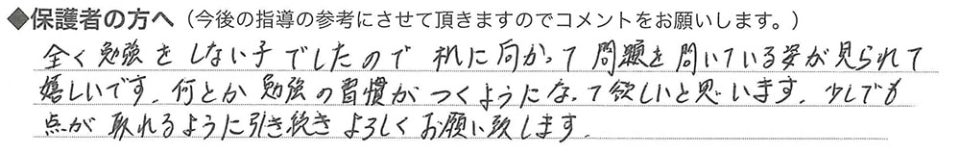 ◆保護者の方へ（今後の指導の参考にさせて頂きますのでコメントをお願いします。）
全く勉強をしない子でしたので 机に向かって 問題を問いている姿が見られて
嬉しいです. 何とか勉強の習慣がつくようになって欲しいと思います. 少しでも
点が取れるように引き続きよろしくお願い致します.